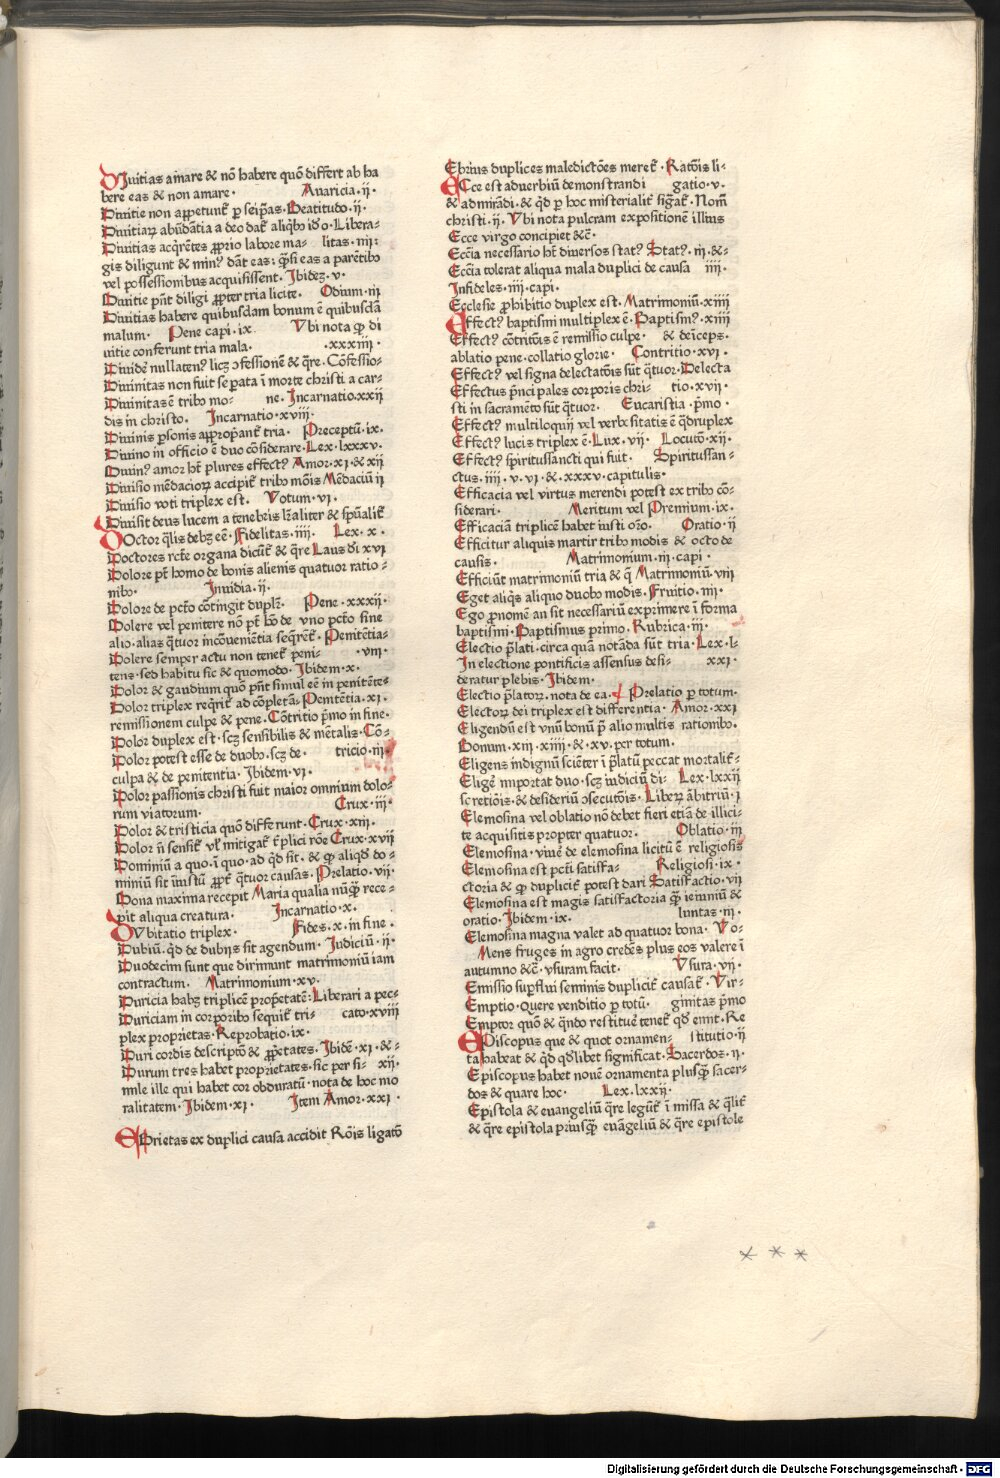 Diuitias amare & nõ habere quõ differt ab ha
bere eas & non amare. Auaricia.ij.
Diuitie non appetunt̄ p seip̄as. Beatitudo.ij.
Diuitiaꝝ abũdãtia a deo dat̄ aliqbꝰ iõo. Libera⸗
Diuitias acq̄rẽtes ꝓprio labore ma⸗ litas.iiij:
gis diligunt & minꝰ dãt eas: q̄si eas a parẽtibꝰ
vel possessionibus acquisissent. Ibidez.v.
Diuitie pñt diligi ꝓpter tria licite. Odium.iij
Diuitias habere quibusdam bonum ẽ quibusdã
malum. Pene capi.ix. Vbi nota ꝙ di
uitie conferunt tria mala. .xxxiij.
Diuidẽ nullatenꝰ licꝫ ↄfessionẽ & q̄re. Cõfessio⸗
Diuinitas non fuit sepata ĩ morte christi a car⸗
Diuinitas ẽ tribꝰ mo⸗ ne. Incarnatio.xxij
dis in christo. Incarnatio.xviij.
Diuinis psonis apꝓpãnt̄ tria. Preceptũ.ix.
Diuino in officio ẽ duo cõsiderare. Lex.lxxxv.
Diuinꝰ amor hẽt plures effectꝰ. Amor.xj.& xij
Diuisio mẽdacioꝝ accipit̄ tribꝰ mõis Mẽdaciũ ij
Diuisio voti triplex est. Votum.vj.
Diuisit deus lucem a tenebris lr̃aliter & spũalit̄
DOctor q̄lis debꝫ eẽ. Fidelitas.iiij. Lex.x.
Doctores rc̄te organa dicũt̄ & q̄re Laus dĩ xvj
Dolore pt̄ homo de bonis alienis quatuor ratio⸗
nibꝰ. Inuidia.ij.
Dolore de pctõ cõtingit duplr̃. Pene.xxxij.
Dolere vel penitere nõ pt̄ hõ de vno pctõ sine
alio. alias q̄tuor incõueniẽtia seq̄rẽt̄. Penitẽtia⸗
Dolere semper actu non tenet̄ peni⸗ .viij.
tens. sed habitu sic & quomodo. Ibidem.x.
Dolor & gaudium quõ pñt simul eẽ in penitẽtes
Dolor triplex reqrit̄ ad cõpletã. Penitẽtia.xj.
remissionem culpe & pene. Cõtritio pmo in fine.
Dolor duplex est. scꝫ sensibilis & mẽtalis. Cõ⸗
Dolor potest esse de duobꝰ. scꝫ de. tricio.iij.
culpa & de penitentia. Ibidem.vj.
Dolor passionis christi fuit maior omnium dolo⸗
rum viatorum. Crux.iij.
Dolor & tristicia quõ differunt. Crux.xiij.
Dolor ñ sensit̄ vl̃ mitigat̄ t̄plici rõe Crux.xvij
Dominiũ a quo. ĩ quo. ad qd̄ sit. & ꝙ aliqd̃ do⸗
miniũ sit iniustũ ꝓpt̄ q̄tuor causas. Prelatio.vij.
Dona maxima recepit Maria qualia nũq̄ꝫ rece⸗
pit aliqua creatura. Incarnatio.x.
DVbitatio triplex. Fides.x.in fine.
Dubiũ. qd̄ de dubijs sit agendum. Judiciũ.ij.
Duodecim sunt que dirimunt matrimoniũ iam
contractum. Matrimonium.xv.
Duricia habꝫ triplicẽ propetatẽ: Liberari a pec⸗
Duriciam in corporibꝰ sequit̄ tri⸗ cato.xviij
plex proprietas. Reprobatio.ix.
Duri cordis descriptõ & ꝓpetates. Ibidẽ.xj.&⸗
Durum tres habet proprietates. sic per si⸗ xij.
mile ille qui habet cor obduratũ. nota de hoc mo
ralitatem. Ibidem.xj. Item Amor.xxj.
EBrietas ex duplici causa accidit Rõis ligatõ
Ebrius duplices maledictões meret̄. Ratõis li⸗
ECce est aduerbiũ demonstrandi gatio.v.
& admirãdi. & qd̄ p hoc misterialit̄ sigat̄. Nom̃
christi.ij. Vbi nota pulcram expositionẽ illius
Ecce virgo concipiet &c̃.
Eccĩa necessario ht̃ diuersos statꝰ. Statꝰ.iij.&⸗
Eccĩa tolerat aliqua mala duplici de causa iiij.
Infideles.iij.capi.
Ecclesie ꝓhibitio duplex est. Matrimoniũ.xiiij
EFfectꝰ baptismi multiplex ẽ. Baptismꝰ.xiiij
Effectꝰ cõtritõis ẽ remissio culpe. & deĩceps.
ablatio pene. collatio glorie. Contritio.xvj.
Effectꝰ vel signa delectatõis sũt q̄tuor. Delecta
Effectus pñcipales corporis chri⸗ tio.xvij.
sti in sacramẽto sũt q̄tuor. Eucaristia.pmo.
Effectꝰ multiloquij vel verbositatis ẽ q̄druplex
Effectꝰ lucis triplex ẽ. Lux.vij. Locutõ.xij.
Effectꝰ spiritussancti qui fuit. Spiritussan⸗
ctus.iiij.v.vj.&.xxxv.capitulis.
Efficacia vel virtus merendi potest ex tribꝰ cõ⸗
siderari. Meritum vel Premium.ix.
Efficaciã triplicẽ habet iusti orõ. Oratio.ij
Efficitur aliquis martir tribꝰ modis & octo de
causis. Matrimonium.iij.capi.
Efficiũt matrimoniũ tria & q̄ Matrimoniũ.viij
Eget aliqs aliquo duobꝰ modis. Fruitio.iij.
Ego pronomẽ an sit necessariũ exprimere ĩ forma
baptismi. Baptismus primo. Rubrica.iij.
Electio p̄lati. circa quã notãda sũt tria. Lex.l⸗
In electione pontificis assensus desi⸗ xxj.
deratur plebis. Ibidem.
Electio p̄latoꝝ. nota de ea. Prelatio p totum.
Electoꝝ dei triplex est differentia. Amor.xxj
Eligendũ est vnũ bonũ p̃ alio multis rationibꝰ.
Bonum.xij.xiiij.&.xv. per totum.
Eligens indignũ sciẽter ĩ p̄latũ peccat mortalit̄⸗
Eligẽ importat duo. scꝫ iudiciũ di⸗ Lex.lxxij
scretiõis. & desideriũ ↄsecutõis. Libeꝝ arbitriũ.j
Elemosina vel oblatio nõ debet fieri etiã de illici⸗
te acquisitis propter quatuor. Oblatio.iij
Elemosina. viuẽ de elemosina licitũ ẽ religiosis
Elemosina est pcti satisfa⸗ Religiosi.ix.
ctoria & ꝙ duplicit̄ potest dari Satisfactio.vij
Elemosina est magis satisfactoria ꝙ̄ ieiuniũ &
oratio. Ibidem.ix. luntas.iij.
Elemosina magna valet ad quatuor bona. Vo⸗
Mens fruges in agro credẽs plus eos valere ĩ
autumno &c̃. vsuram facit. Vsura.vij.
Emissio supflui seminis duplicit̄ causat̄. Vir⸗
Emptio. Quere venditio p totũ. ginitas pmo
Emptor quõ & q̄ndo restituẽ tenet̄ qd̄ emit. Re
EPiscopus que & quot ornamen⸗ stitutio.ij
ta habeat & qd̄ qdlibet significat. Sacerdos.ij.
Episcopus habet nouẽ ornamenta plusq̄ꝫ sacer⸗
dos & quare hoc. Lex.lxxij.
Epistola & euangeliũ q̄re legũt̄ ĩ missa & q̄lit̄
& q̄re epistola priusq̄ꝫ euãgeliũ & q̄re epistole
Digitalisierung gefördert durch die Deutsche Forschungsgemeinschaft - DFG